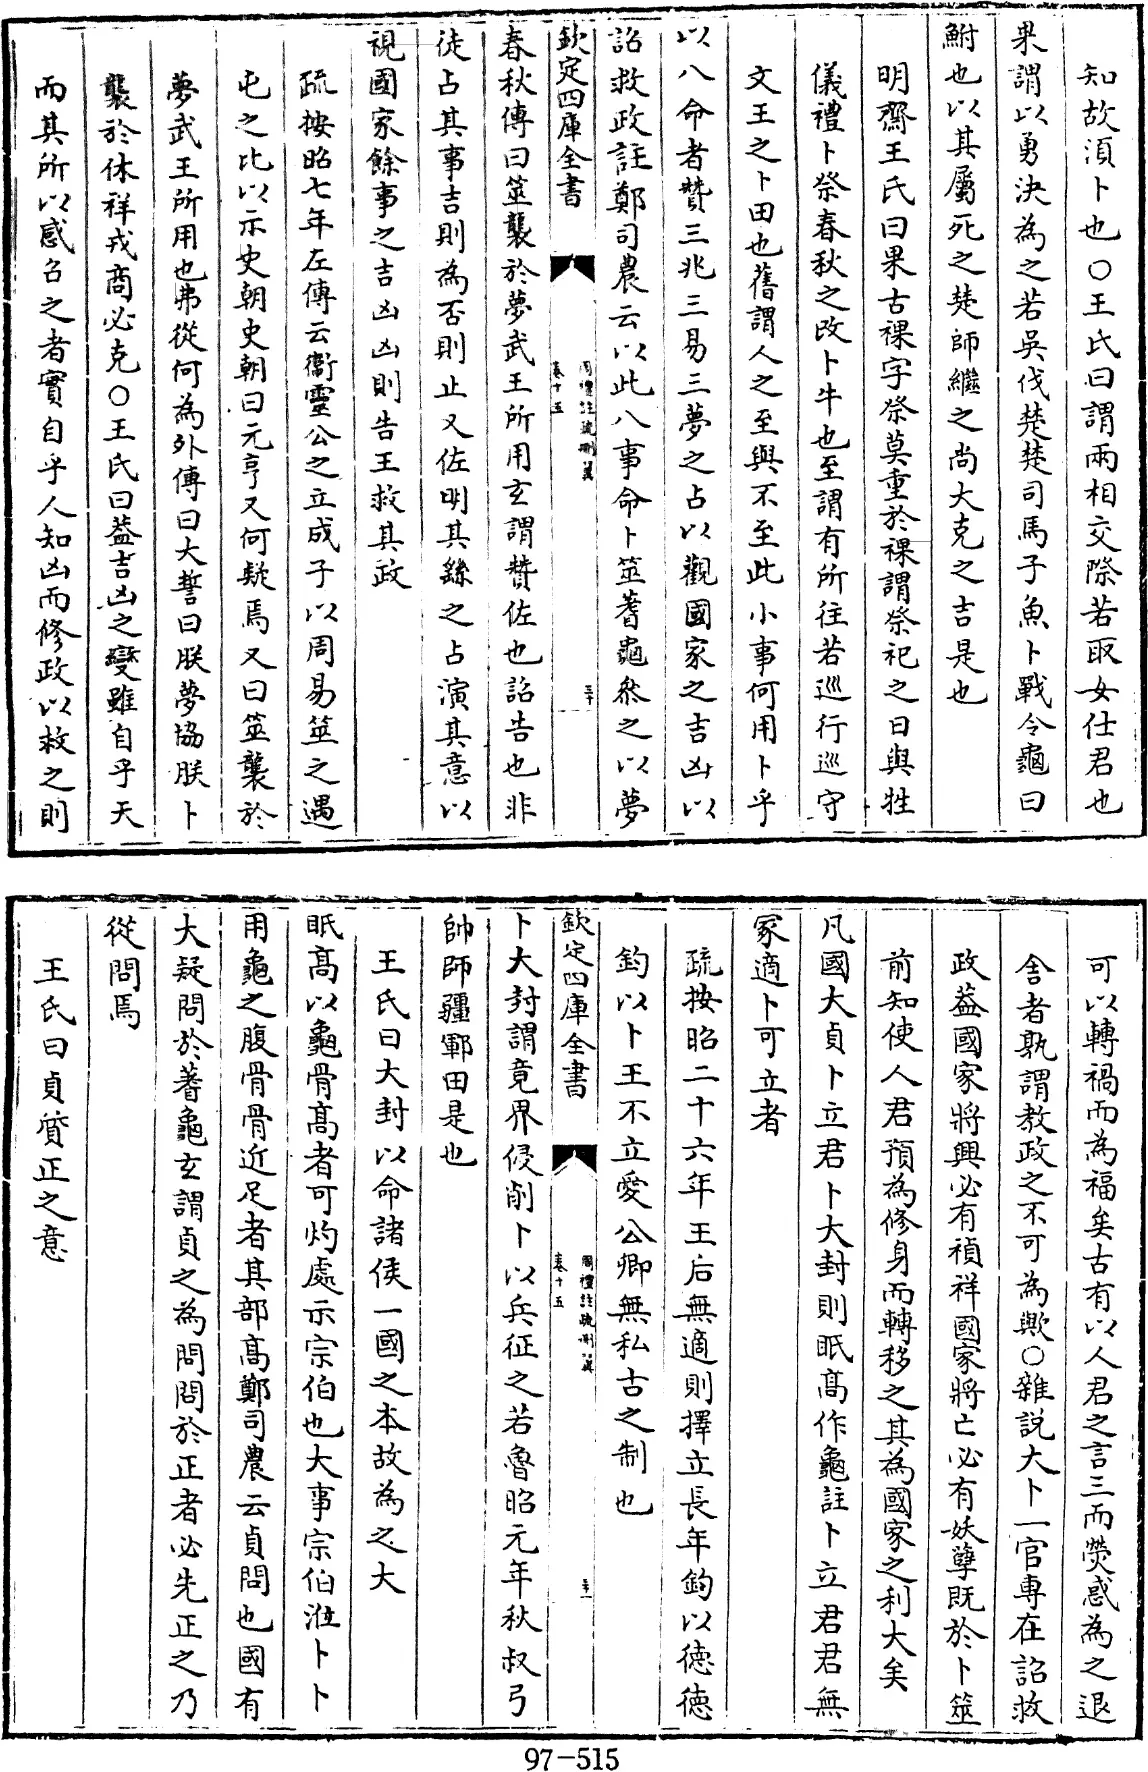 知故須卜也○王氏曰謂兩相交際若取女仕君也
果謂以勇決為之若吳伐楚楚司馬子魚卜戰令龜曰
鮒也以其屬死之楚師繼之尚大克之吉是也
明齋王氏曰果古祼字祭莫重於祼謂祭祀之日與牲
儀禮卜祭春秋之改卜牛也至謂有所往若巡行巡守
文王之卜田也舊謂人之至與不至此小事何用卜乎
以八命者贊三兆三易三夢之占以觀國家之吉凶以
詔救政註鄭司農云以此八事命卜筮蓍龜叅之以夢
欽定四庫全書
周禮註疏刪翼
卷十五
三十
春秋傳曰筮襲於夢武王所用玄謂贊佐也詔告也非
徒占其事吉則為否則止又佐明其繇之占演其意以
視國家餘事之吉凶凶則告王救其政
疏按昭七年左傳云衞靈公之立成子以周易筮之遇
屯之比以示史朝史朝曰元亨又何疑焉又曰筮襲於
夢武王所用也弗從何為外傳曰大誓曰朕夢協朕卜
襲於休祥戎商必克○王氏曰蓋吉凶之變雖自乎天
而其所以感召之者實自乎人知凶而修政以救之則
可以轉禍而為福矣古有以人君之言三而熒惑為之退
舎者孰謂教政之不可為歟○雜說大卜一官專在詔救
政蓋國家將興必有禎祥國家將亡必有妖孽既於卜筮
前知使人君預為修身而轉移之其為國家之利大矣
凡國大貞卜立君卜大封則眡高作龜註卜立君君無
冢適卜可立者
疏按昭二十六年王后無適則擇立長年鈞以德德
鈞以卜王不立愛公卿無私古之制也
欽定四庫全書
周禮註疏刪翼
卷十五
三一
卜大封謂竟界侵削卜以兵征之若魯昭元年秋叔弓
帥師疆鄆田是也
王氏曰大封以命諸侯一國之本故為之大
眡高以龜骨高者可灼處示宗伯也大事宗伯涖卜卜
用龜之腹骨骨近足者其部高鄭司農云貞問也國有
大疑問於蓍龜玄謂貞之為問問於正者必先正之乃
從問焉
王氏曰貞質正之意
97-515